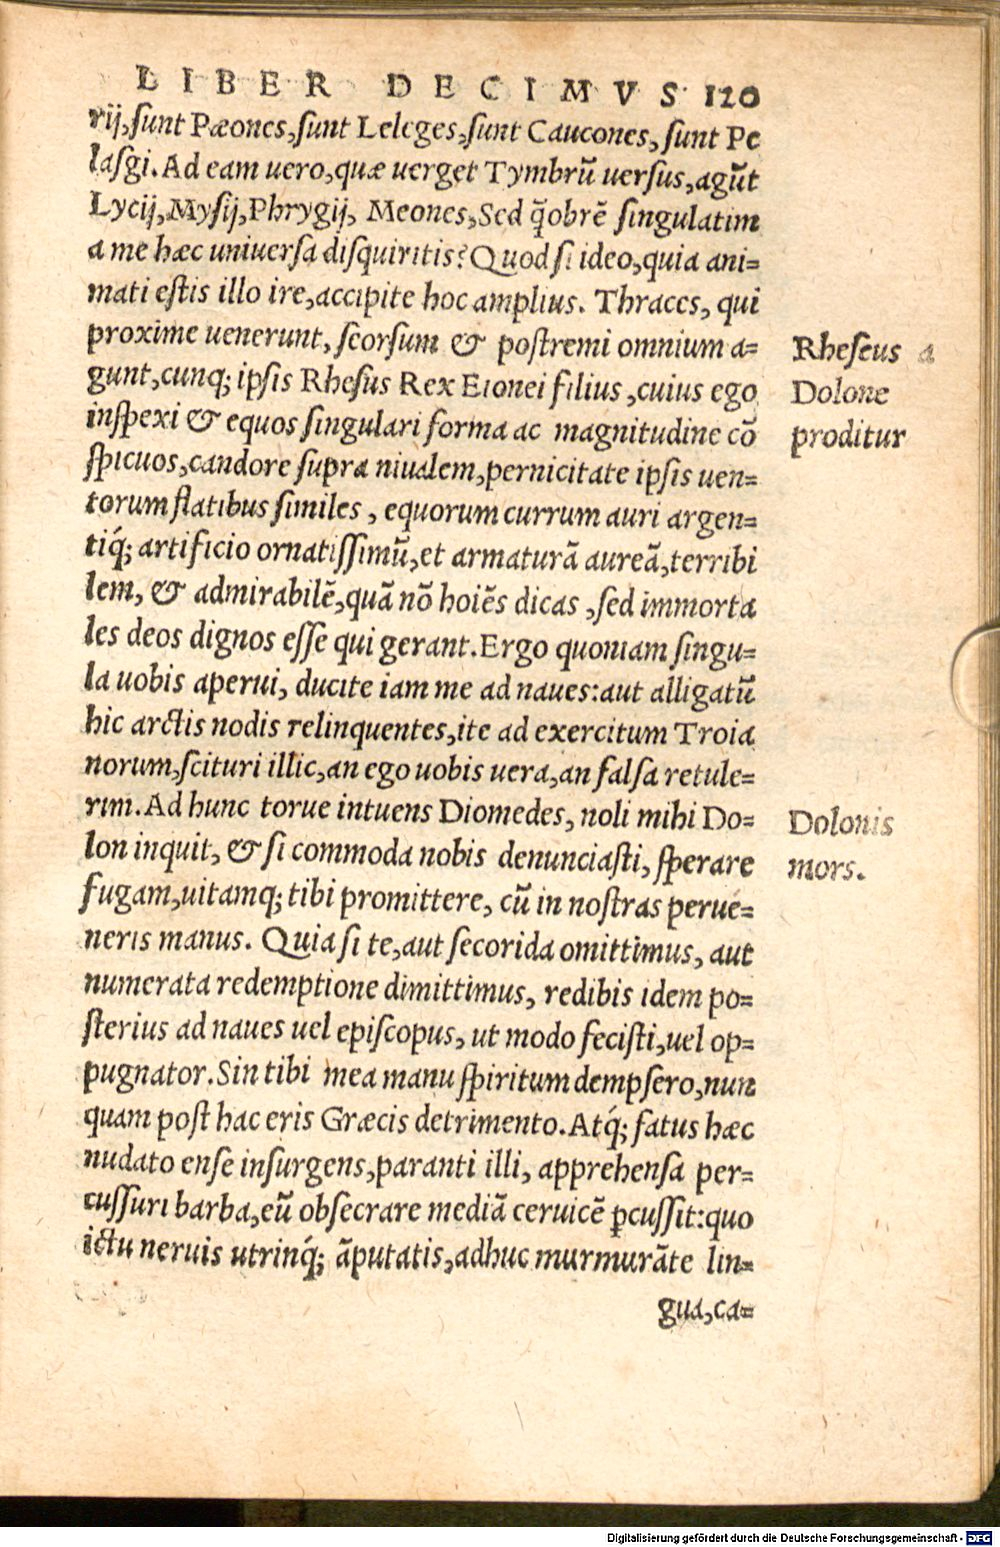 LIBER DECIMVS 120
rij,sunt Pæones,sunt Leleges,sunt Caucones, sunt Pe
lasgi. Ad eam vero,quæ uerget Tymbrũ uersus,agũt
Lycij,Mysij,Phrygij, Meones,Sed q̃obrẽ singulatim
a me hæc uniuersa disquiritis? Quod si ideo,quia ani=
mati estis illo ire,accipite hoc amplius. Thraces, qui
proxime uenerunt, seorsum & postremi omnium a=
gunt,cunq; ipsis Rhesus Rex Eionei filius ,cuius ego
inspexi & equos singulari forma ac magnitudine cõ
spicuos,candore supra niualem,pernicitate ipsis uen=
torum flatibus similes , equorum currum auri argen=
tiq́; artificio ornatissimũ,et armaturã aureã,terribi
lem, & admirabilẽ,quã nõ hoiẽs dicas ,sed immorta
les deos dignos esse qui gerant. Ergo quoniam singu=
la uobis aperui, ducite iam me ad naues: aut alligatũ
hic arctis nodis relinquentes,ite ad exercitum Troia
norum,scituri illic,an ego uobis uera,an falsa retule=
rim. Ad hunc torue intuens Diomedes, noli mihi Do=
lon inquit, & si commoda nobis denunciasti, sperare
fugam,uitamq; tibi promittere, cũ in nostras perue=
neris manus. Quia si te,aut secorida omittimus, aut
numerata redemptione dimittimus, redibis idem po=
sterius ad naues uel episcopus, ut modo fecisti,uel op=
pugnator. Sin tibi mea manu spiritum dempsero,nun
quam post hac eris Græcis detrimento. Atq́; fatus hæc
nudato ense insurgens,paranti illi, apprehensa per=
cussuri barba,eũ obsecrare mediã ceruicẽ ꝑcussit:quo
ictu neruis utrinq́; ãputatis,adhuc murmurãte lin=
gua,ca=
Rheseus a
Dolone
proditur
Dolonis
mors.
Digitalisierung gefördert durch die Deutsche Forschungsgemeinschaft - DFG